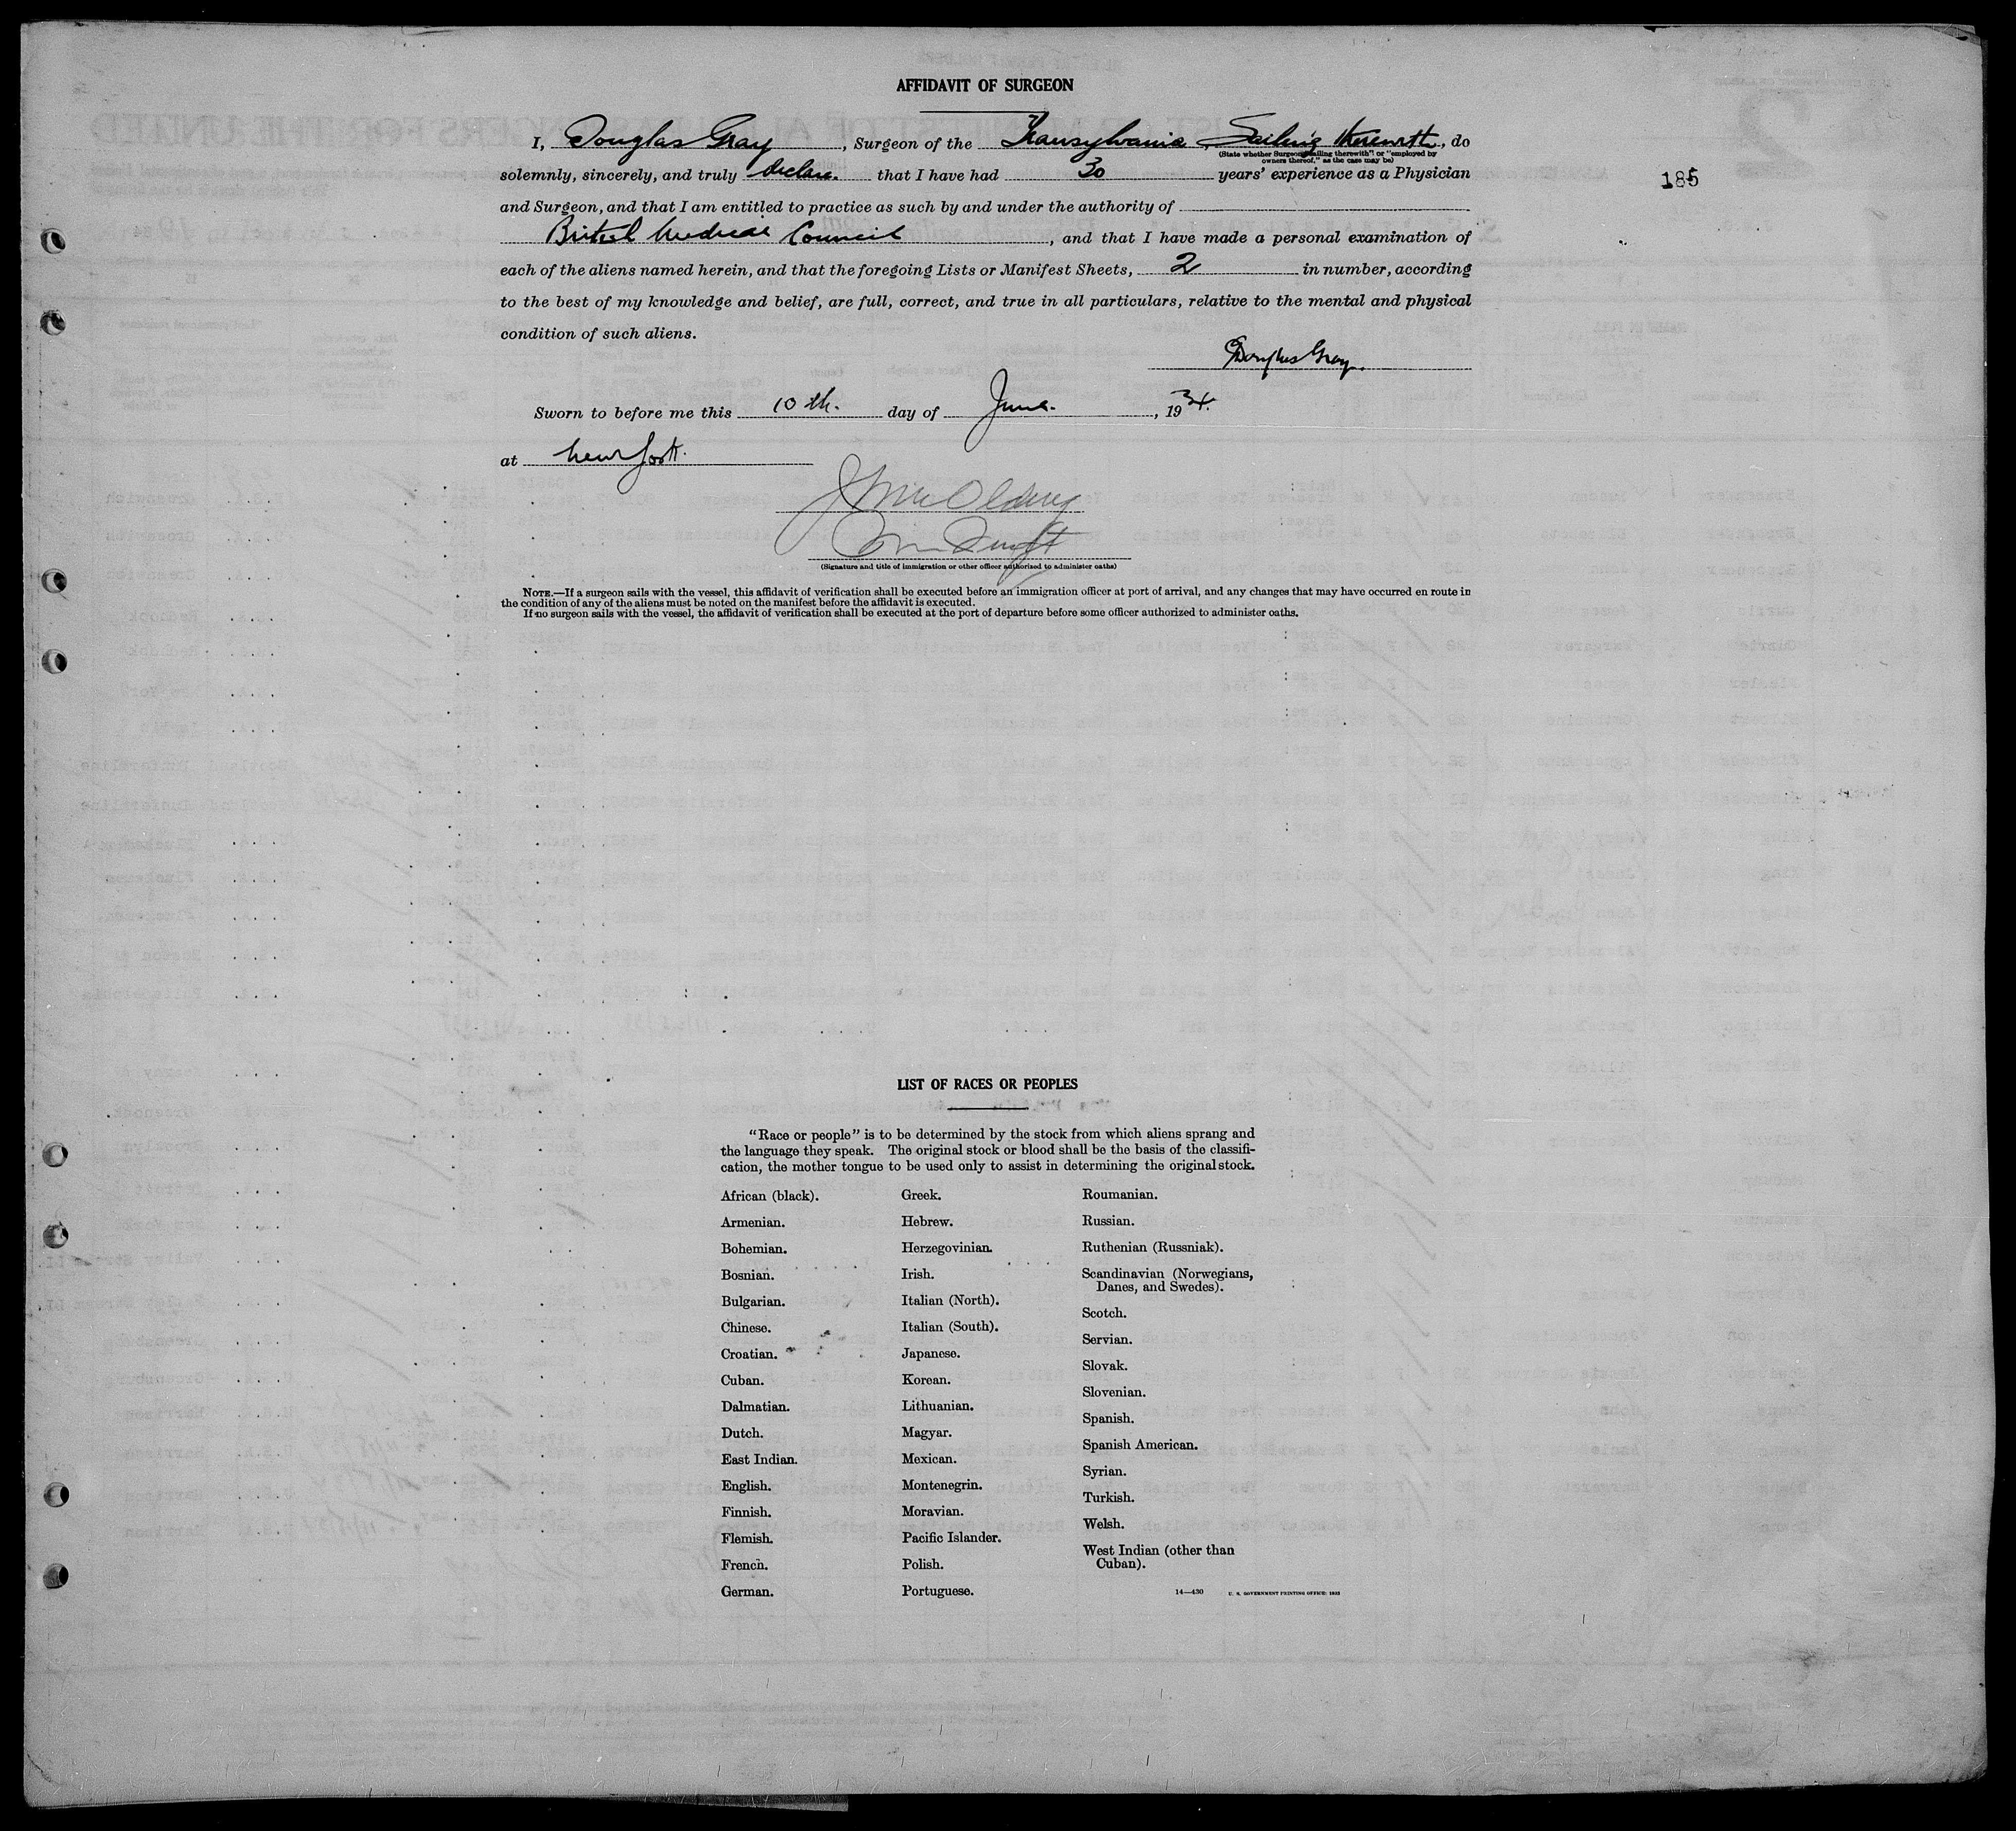 AFFIDAVIT OF SURGEON
I, Douglas Gray, Surgeon of the Transylvania, Sailing therewith, do
(State whether Surgeon "sailing therewith" or "employed by
owners thereof," as the case may be)
solemnly, sincerely, and truly declare. that I have had 30 years' experience as a Physician
185
and Surgeon, and that I am entitled to practice as such by and under the authority of
British Medical Council, and that I have made a personal examination of
each of the aliens named herein, and that the foregoing Lists or Manifest Sheets, 2 in number, according
to the best of my knowledge and belief, are full, correct, and true in all particulars, relative to the mental and physical
condition of such aliens.
Douglas Gray.
Sworn to before me this 10th. day of June., 1934.
at New York.
(Signature and title of immigration or other officer authorized to administer oaths)
NOTE.—If a surgeon sails with the vessel, this affidavit of verification shall be executed before an immigration officer at port of arrival, and any changes that may have occurred en route in
the condition of any of the aliens must be noted on the manifest before the affidavit is executed.
If no surgeon sails with the vessel, the affidavit of verification shall be executed at the port of departure before some officer authorized to administer oaths.
LIST OF RACES OR PEOPLES
"Race or people" is to be determined by the stock from which aliens sprang and
the language they speak. The original stock or blood shall be the basis of the classifi-
cation, the mother tongue to be used only to assist in determining the original stock.
African (black).
Armenian.
Bohemian.
Bosnian.
Bulgarian.
Chinese.
Croatian.
Cuban.
Dalmatian.
Dutch.
East Indian.
English.
Finnish.
Flemish.
French.
German.
Greek.
Hebrew.
Herzegovinian.
Irish.
Italian (North).
Italian (South).
Japanese.
Korean.
Lithuanian.
Magyar.
Mexican.
Montenegrin.
Moravian.
Pacific Islander.
Polish.
Portuguese.
Roumanian.
Russian.
Ruthenian (Russniak).
Scandinavian (Norwegians,
Danes, and Swedes).
Scotch.
Servian.
Slovak.
Slovenian.
Spanish.
Spanish American.
Syrian.
Turkish.
Welsh.
West Indian (other than
Cuban).
14—430 U. S. GOVERNMENT PRINTING OFFICE: 1933